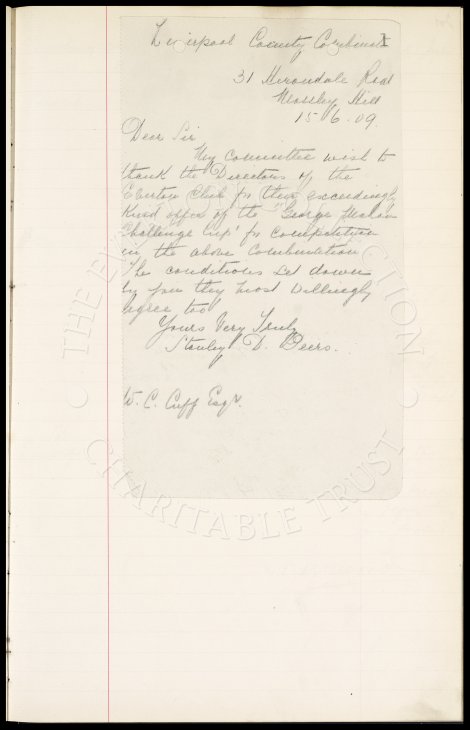 Liverpool County Combinat
31 Herondale Road
Mossley Hill
15 6. 09.
Dear Sir
My committee wish to
thank the Directors of the
Everton Club for their exceedingly
kind offer of the "George Mahon
Challenge Cup" for competition
in the above Combination
The conditions set down
by you they most willingly
agree too
Yours Very Truly
Stanley D. Beers.
W. C. Cuff Esqr.
THE EVERTON COLLECTION
CHARITABLE TRUST